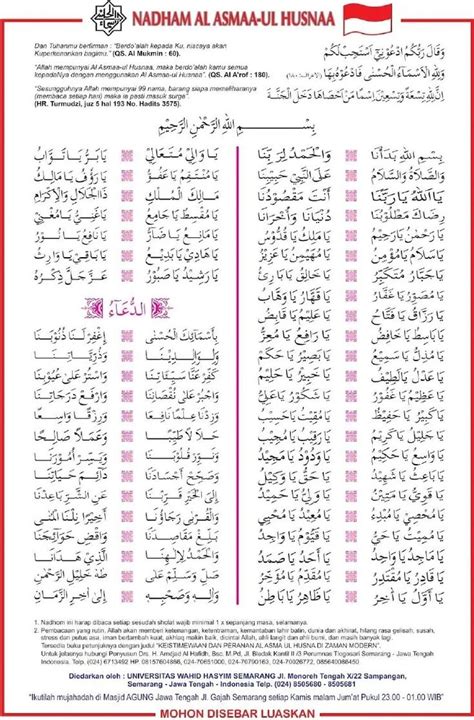 NADHAM AL ASMAA-UL HUSNAA
Dan Tuhanmu berfirman : "Berdo'alah kepada Ku, niscaya akan
Kuperkenankan bagimu." (QS. Al Mukmin : 60).
وَقَالَ رَبُّكُمُ ادْعُوْنِيْ اَسْتَجِبْ لَكُمْ
"Allah mempunyai Al Asmaa-ul Husnaa, maka berdo'alah kamu semua
kepadaNya dengan menggunakan Al Asmaa-ul Husnaa". (QS. Al A'rof : 180).
وَلِلّٰهِ الْاَسْمَاءُ الْحُسْنٰى فَادْعُوْهُ بِهَا
"Sesungguhnya Allah mempunyai 99 nama, barang siapa memeliharanya
(membaca setiap hari) maka ia pasti masuk surga".
(HR. Turmudzi, juz 5 hal 193 No. Hadits 3575).
اِنَّ لِلّٰهِ تِسْعَةً وَتِسْعِيْنَ اِسْمًا مَنْ اَحْصَاهَا دَخَلَ الْجَنَّةَ
بِسْمِ اللهِ الرَّحْمٰنِ الرَّحِيْمِ
بِسْمِ اللهِ بَدَأْنَا وَالْحَمْدُ لِرَبِّنَا
وَالصَّلَاةُ وَالسَّلَامُ عَلَى النَّبِيِّ حَبِيْبِنَا
يَا اَللهُ يَا رَبَّنَا أَنْتَ مَقْصُوْدُنَا
رِضَاكَ مَطْلُوْبُنَا دُنْيَانَا وَأُخْرَانَا
يَا رَحْمٰنُ يَا رَحِيْمُ يَا مَلِكُ يَا قُدُّوْسُ
يَا سَلَامُ يَا مُؤْمِنُ يَا مُهَيْمِنُ يَا عَزِيْزُ
يَا جَبَّارُ يَا مُتَكَبِّرُ يَا خَالِقُ يَا بَارِئُ
يَا مُصَوِّرُ يَا غَفَّارُ يَا قَهَّارُ يَا وَهَّابُ
يَا رَزَّاقُ يَا فَتَّاحُ يَا عَلِيْمُ يَا قَابِضُ
يَا بَاسِطُ يَا خَافِضُ يَا رَافِعُ يَا مُعِزُّ
يَا مُذِلُّ يَا سَمِيْعُ يَا بَصِيْرُ يَا حَكَمُ
يَا عَدْلُ يَا لَطِيْفُ يَا خَبِيْرُ يَا حَلِيْمُ
يَا عَظِيْمُ يَا غَفُوْرُ يَا شَكُوْرُ يَا عَلِيُّ
يَا كَبِيْرُ يَا حَفِيْظُ يَا مُقِيْتُ يَا حَسِيْبُ
يَا جَلِيْلُ يَا كَرِيْمُ يَا رَقِيْبُ يَا مُجِيْبُ
يَا وَاسِعُ يَا حَكِيْمُ يَا وَدُوْدُ يَا مَجِيْدُ
يَا بَاعِثُ يَا شَهِيْدُ يَا حَقُّ يَا وَكِيْلُ
يَا قَوِيُّ يَا مَتِيْنُ يَا وَلِيُّ يَا حَمِيْدُ
يَا مُحْصِيْ يَا مُبْدِئُ يَا مُعِيْدُ يَا مُحْيِيْ
يَا مُمِيْتُ يَا حَيُّ يَا قَيُّوْمُ يَا وَاجِدُ
يَا مَاجِدُ يَا وَاحِدُ يَا اَحَدُ يَا صَمَدُ
يَا قَادِرُ يَا مُقْتَدِرُ يَا مُقَدِّمُ يَا مُؤَخِّرُ
يَا اَوَّلُ يَا اٰخِرُ يَا ظَاهِرُ يَا بَاطِنُ
يَا وَالِيْ يَا مُتَعَالِيْ يَا بَرُّ يَا تَوَّابُ
يَا مُنْتَقِمُ يَا عَفُوُّ يَا رَؤُفُ يَا
مَالِكَ الْمُلْكِ ذَا الْجَلَالِ وَالْاِكْرَامِ
يَا مُقْسِطُ يَا جَامِعُ يَا غَنِيُّ يَا مُغْنِيْ
يَا مَانِعُ يَا ضَارُّ يَا نَافِعُ يَا نُوْرُ
يَا هَادِيْ يَا بَدِيْعُ يَا بَاقِيْ يَا وَارِثُ
يَا رَشِيْدُ يَا صَبُوْرُ عَزَّ جَلَّ ذِكْرُهُ
الدُّعَاءُ
بِأَسْمَائِكَ الْحُسْنٰى اِغْفِرْ لَنَا ذُنُوْبَنَا
وَلِوَالِدِيْنَا وَذُرِّيَّاتِنَا
كَفِّرْ عَنْ سَيِّئَاتِنَا وَاسْتُرْ عَلٰى عُيُوْبِنَا
وَاجْبُرْ عَلٰى نُقْصَانِنَا وَارْفَعْ دَرَجَاتِنَا
وَزِدْنَا عِلْمًا نَافِعًا وَرِزْقًا وَاسِعًا
حَلَالًا طَيِّبًا وَعَمَلًا صَالِحًا
وَنَوِّرْ قُلُوْبَنَا وَيَسِّرْ اُمُوْرَنَا
وَصَحِّحْ اَجْسَادَنَا دَائِمَ حَيَاتِنَا
اِلَى الْخَيْرِ قَرِّبْنَا عَنِ الشَّرِّ بَاعِدْنَا
وَالْقُرْبٰى رَجَاؤُنَا اَخِيْرًا نِلْنَا الْمُنٰى
بَلِّغْ مَقَاصِدَنَا وَاقْضِ حَوَائِجَنَا
وَالْحَمْدُ لِاِلٰهِنَا الَّذِيْ هَدَانَا
صَلِّ وَسَلِّمْ عَلٰى طٰهٰ خَلِيْلِ الرَّحْمٰنِ
وَاٰلِهِ وَصَحْبِهِ اِلٰى اٰخِرِ الزَّمَانِ
1. Nadhom ini harap dibaca setiap sesudah sholat wajib minimal 1 x sepanjang masa, selamanya.
2. Pembacaan yang rutin, Allah akan memberi ketenangan, ketentraman, kemantaban lahir batin, dunia dan akhirat, hilang rasa gelisah, susah,
stress dan putus asa, iman bertambah kuat, akhlaq makin baik, dicintai Allah, ahli langit dan ahli bumi, dan masih banyak lagi.
Tersedia buku petunjuknya dengan judul "KEISTIMEWAAN DAN PERANAN AL ASMAA UL HUSNA DI ZAMAN MODERN".
Untuk jelasnya hubungi Penyusun Drs. H. Amdjad Al Hafidh, Bsc. M.Pd, Jl. Bledak Kantil II /3 Perumnas Tlogosari Semarang - Jawa Tengah
Indonesia. Telp. (024) 6713492
Diedarkan oleh : UNIVERSITAS WAHID HASYIM SEMARANG Jl. Menoreh Tengah X/22 Sampangan,
Semarang - Jawa Tengah - Indonesia - Telp. (024) 8505680 - 8505681
"Ikutilah mujahadah di Masjid AGUNG Jawa Tengah Jl. Gajah Semarang setiap Kamis malam Jum'at Pukul 23.00 - 01.00 WIB"
MOHON DISEBAR LUASKAN